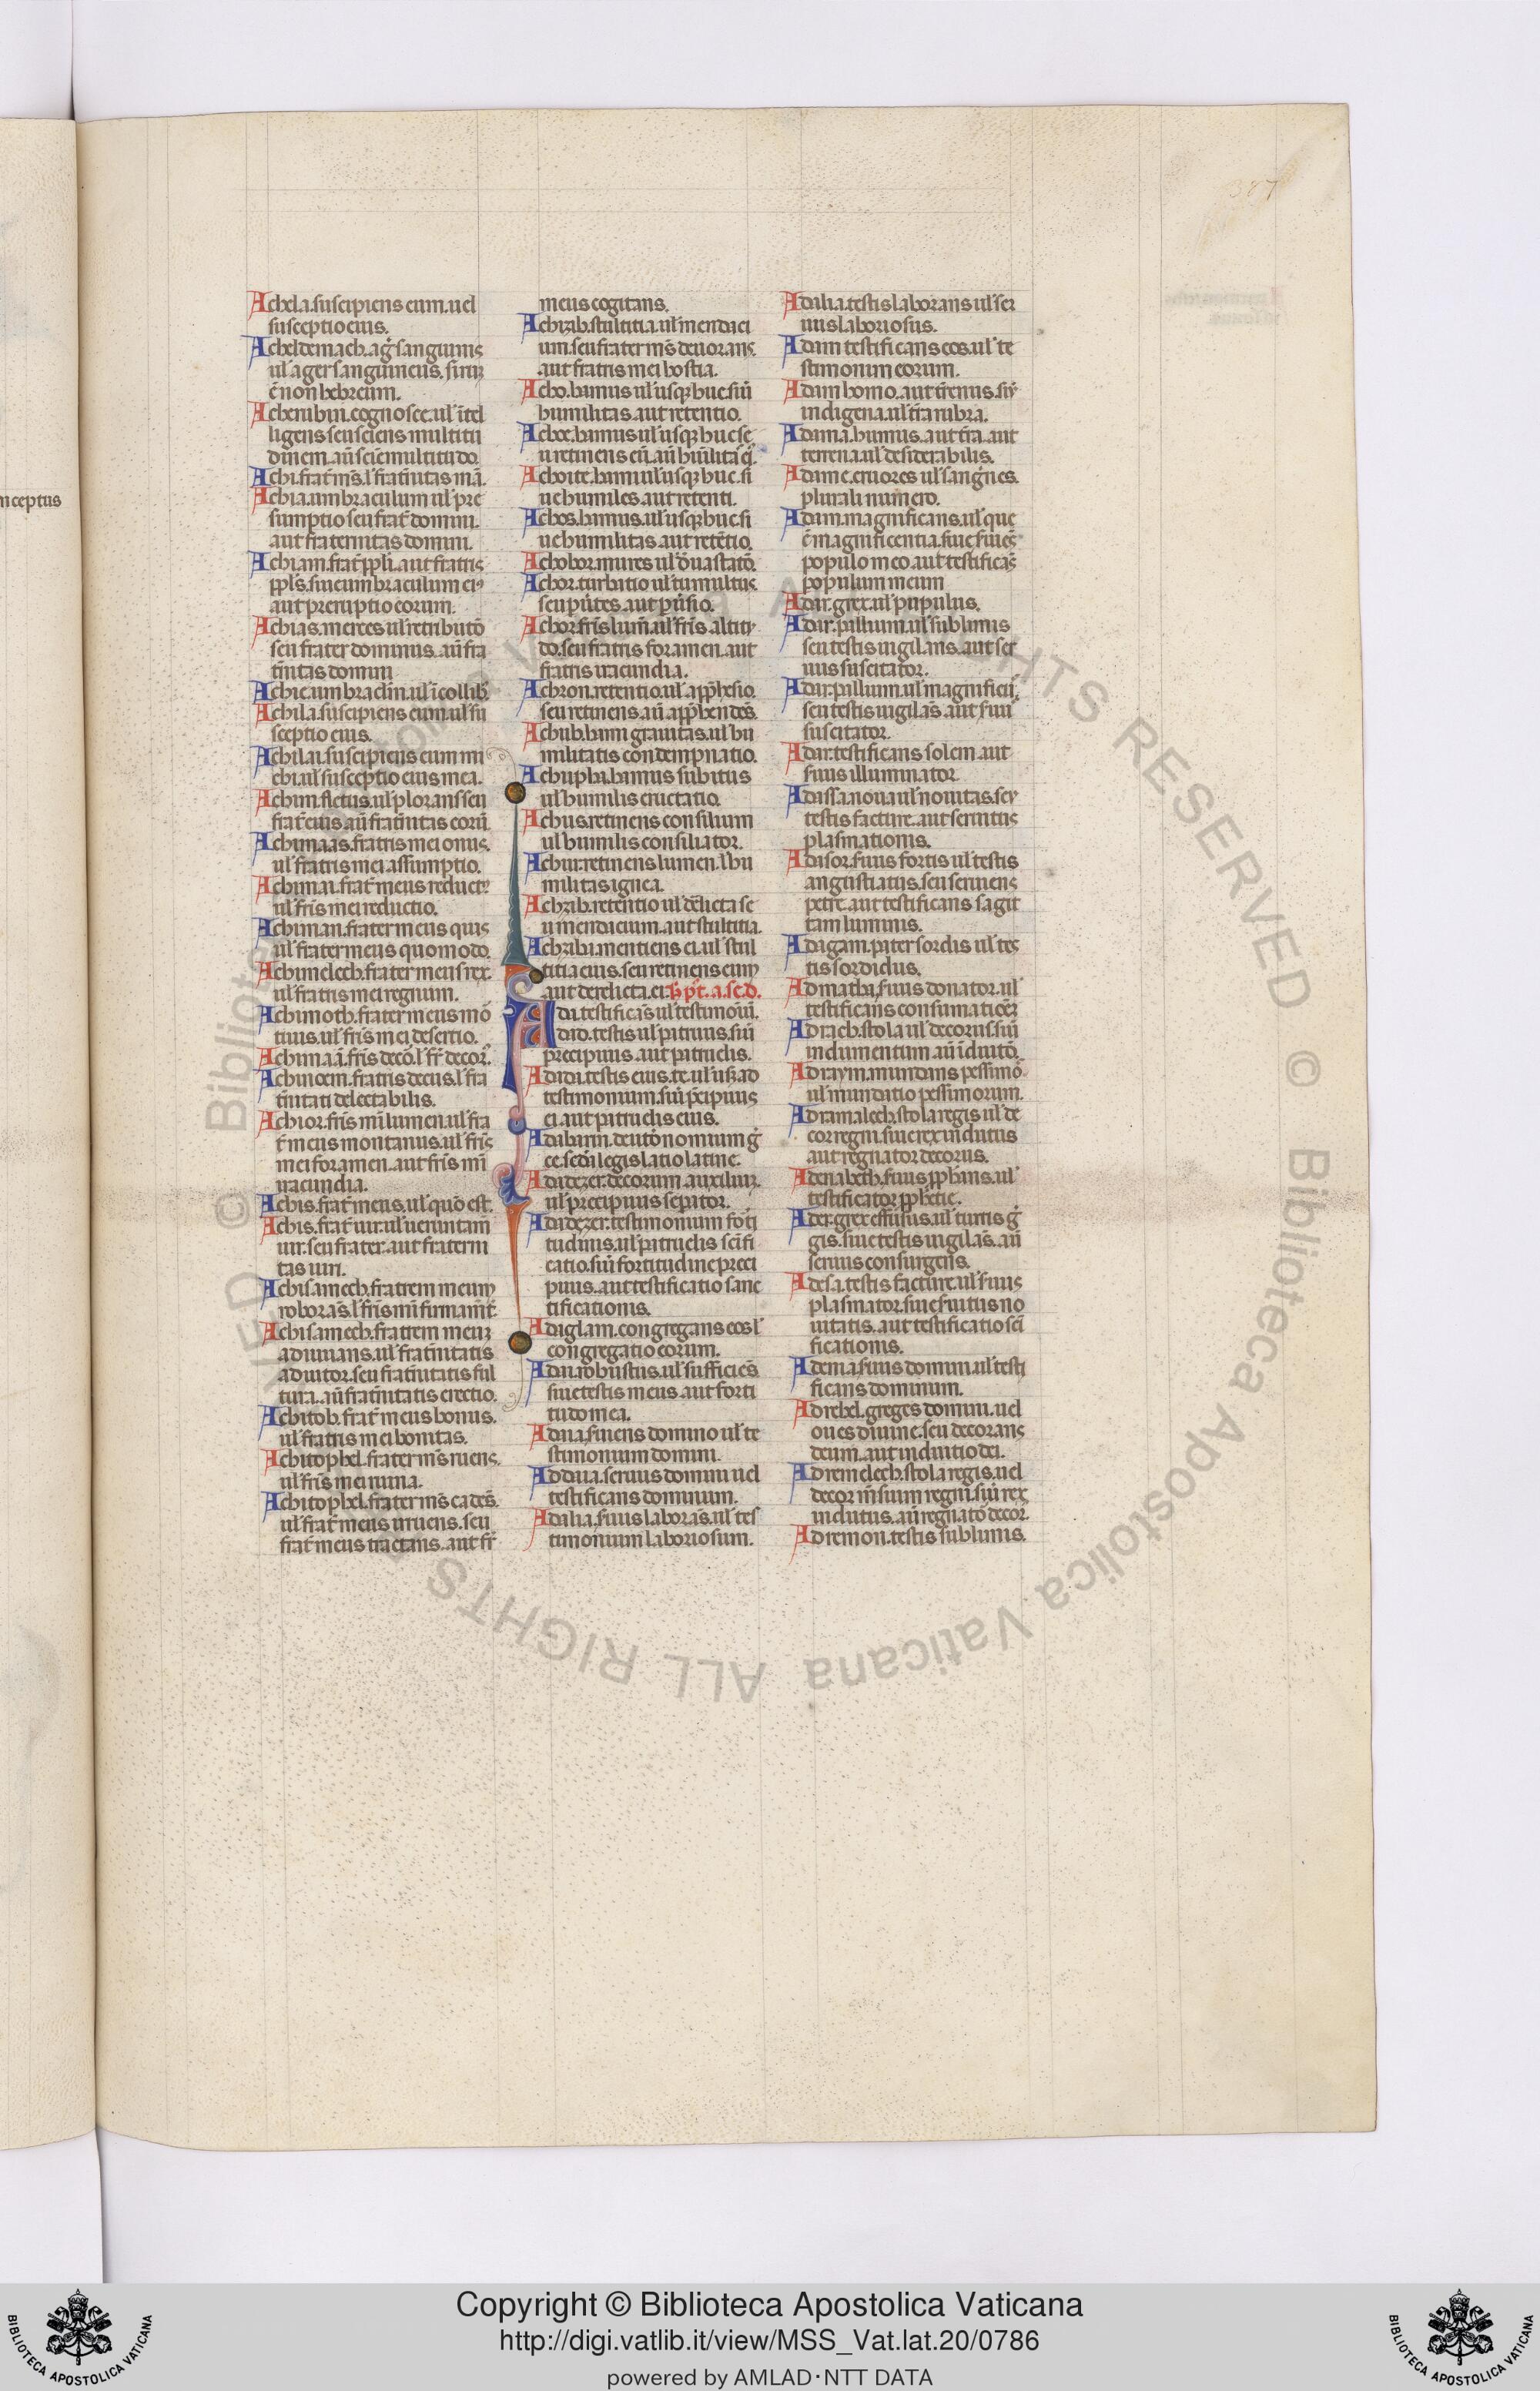 nceptus
387
Achela. suscipiens eum. uel
susceptio eius.
Acheldemach. ag̃ sanguinis
ul' ager sanguineus. siriũ
ẽ non hebreum.
Acherubin. cognosce. ul' ĩtel
ligens seu sciens multitu
dinem. aũ sciẽ multitudo.
Achi. frat̃ ms̃. l' frat̃nitas mã.
Achia. umbraculum ul' pre
sumptio seu frat̃ domini.
aut fraternitas domini.
Achiam. frat̃ ppl'i. aut fratris
ppl's. siue umbraculum ei9
aut preruptio eorum.
Achias. merces ul' retributõ
seu frater dominus. aũ fra
t̃nitas domini
Achila. suscipiens eum. ul' su
sceptio eius.
Achilai. suscipiens eum mi
chi. ul' susceptio eius mea.
Achim. fletus. ul' plorans seu
frat̃ eius aũ frat̃nitas eorũ.
Achimaas. fratris mei onus.
ul' fratris mei assumptio.
Achimai. frat̃ meus reduct9
ul' fr̃is mei reductio.
Achiman. frater meus quis
ul' frater meus quomodo.
Achimelech. frater meus rex.
ul' fratris mei regnum.
Achimoth. frater meus mõ
tuus. ul' fr̃is mei desertio.
Achinoem. fratris decus. l' fra
t̃nitati delectabilis.
Achior. fr̃is mi lumen. ul' fra
t̃ meus montanus. ul' fr̃is
mei foramen. aut fr̃is mĩ
uacundia.
Achis. frat̃ meus. ul' quõ est.
Achis. frat̃ uir. ul' ueruntam̃
uir. seu frater. aut fraterni
tas uiri.
Achisamech. fratrem meum
roborãs. l' fr̃is mĩ firmam̃t̃.
Achisamech. fratrem meuz
adiuuans. ul' frat̃nitatis
adiutor. seu frat̃nitatis ful
tura. aũ frat̃nitatis erectio.
Achitob. frat̃ meus bonus.
ul' fratris mei bonitas.
Achitophel. frater ms̃ ruens.
ul' fr̃is mei ruina.
Achitophel. frater ms̃ cadẽs.
ul' frat̃ meus irruens. seu
frat̃ meus tractans. aut fr̃
meus cogitans.
Achizib. stultitia. ul' mendaci
um. seu frater ms̃ deuorans.
aut fratris mei hostia.
Acho. hamus ul' usqz huc. siũ
humilitas aut retentio.
Achoe. hamus ul' usqz huc se
u retinens eũ. aũ hũilitas q̃.
Achoite. hami ul' usqz huc. si
ue humiles. aut retenti.
Achos. hamus. ul' usqz huc. si
ue humilitas aut retẽtio.
Achobor. mures ul' d̃uastatõ.
Achor. turbatio ul' tumultus.
Achor. fr̃is lum̃. ul' fr̃is altitu
do. seu fratris foramen. aut
fratris iracundia.
Achron. retentio. ul' app̃hesio.
seu retinens. aũ app̃hendẽs.
Achub. hami grauitas. ul' hu
militatis contempnatio.
Achupha. hamus subitus
ul' humilis eructatio.
Achus. retinens consilium
ul' humilis consiliator.
Achur. retinens lumen. l' hu
militas ignea.
Achzib. retentio ul' delicta se
u mendacium. aut stultitia.
Achzibi. mentiens ei. ul' stul
titia eius. seu retinens eum
aut derelicta. ei. h̃ p̃t. a. sc. d.
Ada. testificãs ul' testimoĩũ.
Adad. testis ul' patruus. siũ
precipuus. aut patruelis.
Adada. testis eius. te. ul' usqz ad
testimonium. siũ p̃cipuus
ei. aut patruelis eius.
Adabarim. deut̃onomium g̃
ce. sedã legislatio latine.
Adadezer. decorum auxiliuz.
ul' precipuus sepator.
Adadezer. testimonium fort̃
tudinis. ul' patruelis sc̃ifi
catio. siũ fortitudine preci
puus. aut testificatio sanc
tificationis.
Adiglam. congregans eos l'
congregatio eorum.
Adai. robustus. ul' sufficiẽs
siue testis meus aut forti
tudo mea.
Adaia. seruiens domino ul' te
stimonium domini.
Addaia. seruus domini uel
testificans dominum.
Adalia. seruus laborãs. ul' tes
timonium laboriosum.
Adalia. testis laborans ul' ser
uus laboriosus.
Adam testificans eos. ul' te
stimonium eorum.
Adam homo. aut t̃renus. siũ
indigena. ul' t̃ra rubra.
Adama. humus. aut t̃ra. aut
terrena. ul' desiderabilis.
Adame. cruores ul' sang̃nes.
plurali numero.
Adam. magnificans. ul' que
ẽ magnificentia. siue seruiẽs
populo meo. aut testificãs
populum meum
Adar. grex. ul' papulus.
Adar. pallium. ul' sublimis
seu testis uigilans. aut ser
uus suscitator.
Adar. pallium. ul' magnificũ.
seu testis uigilãs. aut seruũ
suscitator.
Adar. testificans solem aut
seruus illuminator.
Adassa. noua ul' nouitas. seu
testis facture. aut seruitus
plasmationis.
Adasor. seruus fortis ul' testis
angustiatus. seu seruiens
petre. aut testificans sagit
tam luminis.
Adagam. pater sordis ul' tes
tis sordidus.
Admatha. seruus donator. ul'
testificans consumationẽz
Adrach. stola ul' decorus. siũ
indumentum aũ induitõ.
Adraym. mundans pessimõ.
ul' munditio pessimorum.
Adramalech. stola regis ul' de
cor regni. siue rex indutus
aut regnator decorus.
Adenabeth. seruus pp̃hans. ul'
testificator pp̃hetie.
Ader. grex effusus. ul' turris g̃
gis. siue testis uigilãs. aũ
seruus consurgens.
Adesa. testis facture. ul' seruus
plasmator. siue seruitus no
uitatis. aut testificatio sc̃i
ficationis.
Adema. seruus domini. ul' testi
ficans dominum.
Adrebel. greges domini. uel
oues diuine. seu decorans
deum. aut induitio dei.
Adremelech. stola regis. uel
decor m̃sium regni. siũ rex
indutus. aũ regnatõ decor.
Adremon. testis sublimis.
© Biblioteca Apostolica Vaticana ALL RIGHTS RESERVED
Copyright © Biblioteca Apostolica Vaticana
http://digi.vatlib.it/view/MSS_Vat.lat.20/0786
powered by AMLAD·NTT DATA
BIBLIOTECA APOSTOLICA VATICANA
BIBLIOTECA APOSTOLICA VATICANA